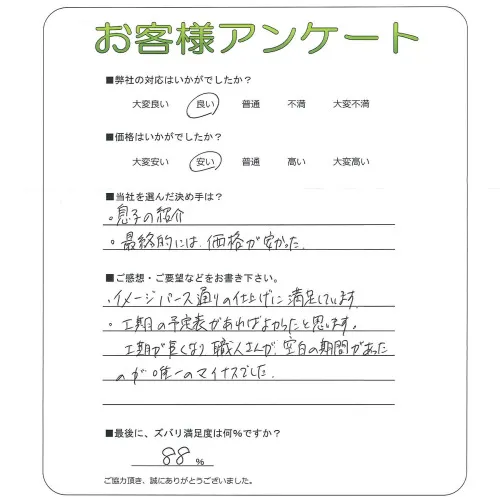 お客様アンケート
■弊社の対応はいかがでしたか？
大変良い 良い 普通 不満 大変不満
■価格はいかがでしたか？
大変安い 安い 普通 高い 大変高い
■当社を選んだ決め手は？
・息子の紹介
・最終的には、価格が安かった。
■ご感想・ご要望などをお書き下さい。
・イメージパース通りの仕上げに満足しています。
・工期の予定表があればよかったと思います。
工期が長くなり職人さんが、空白の期間があった
のが唯一のマイナスでした。
■最後に、ズバリ満足度は何％ですか？
88 %
ご協力頂き、誠にありがとうございました。